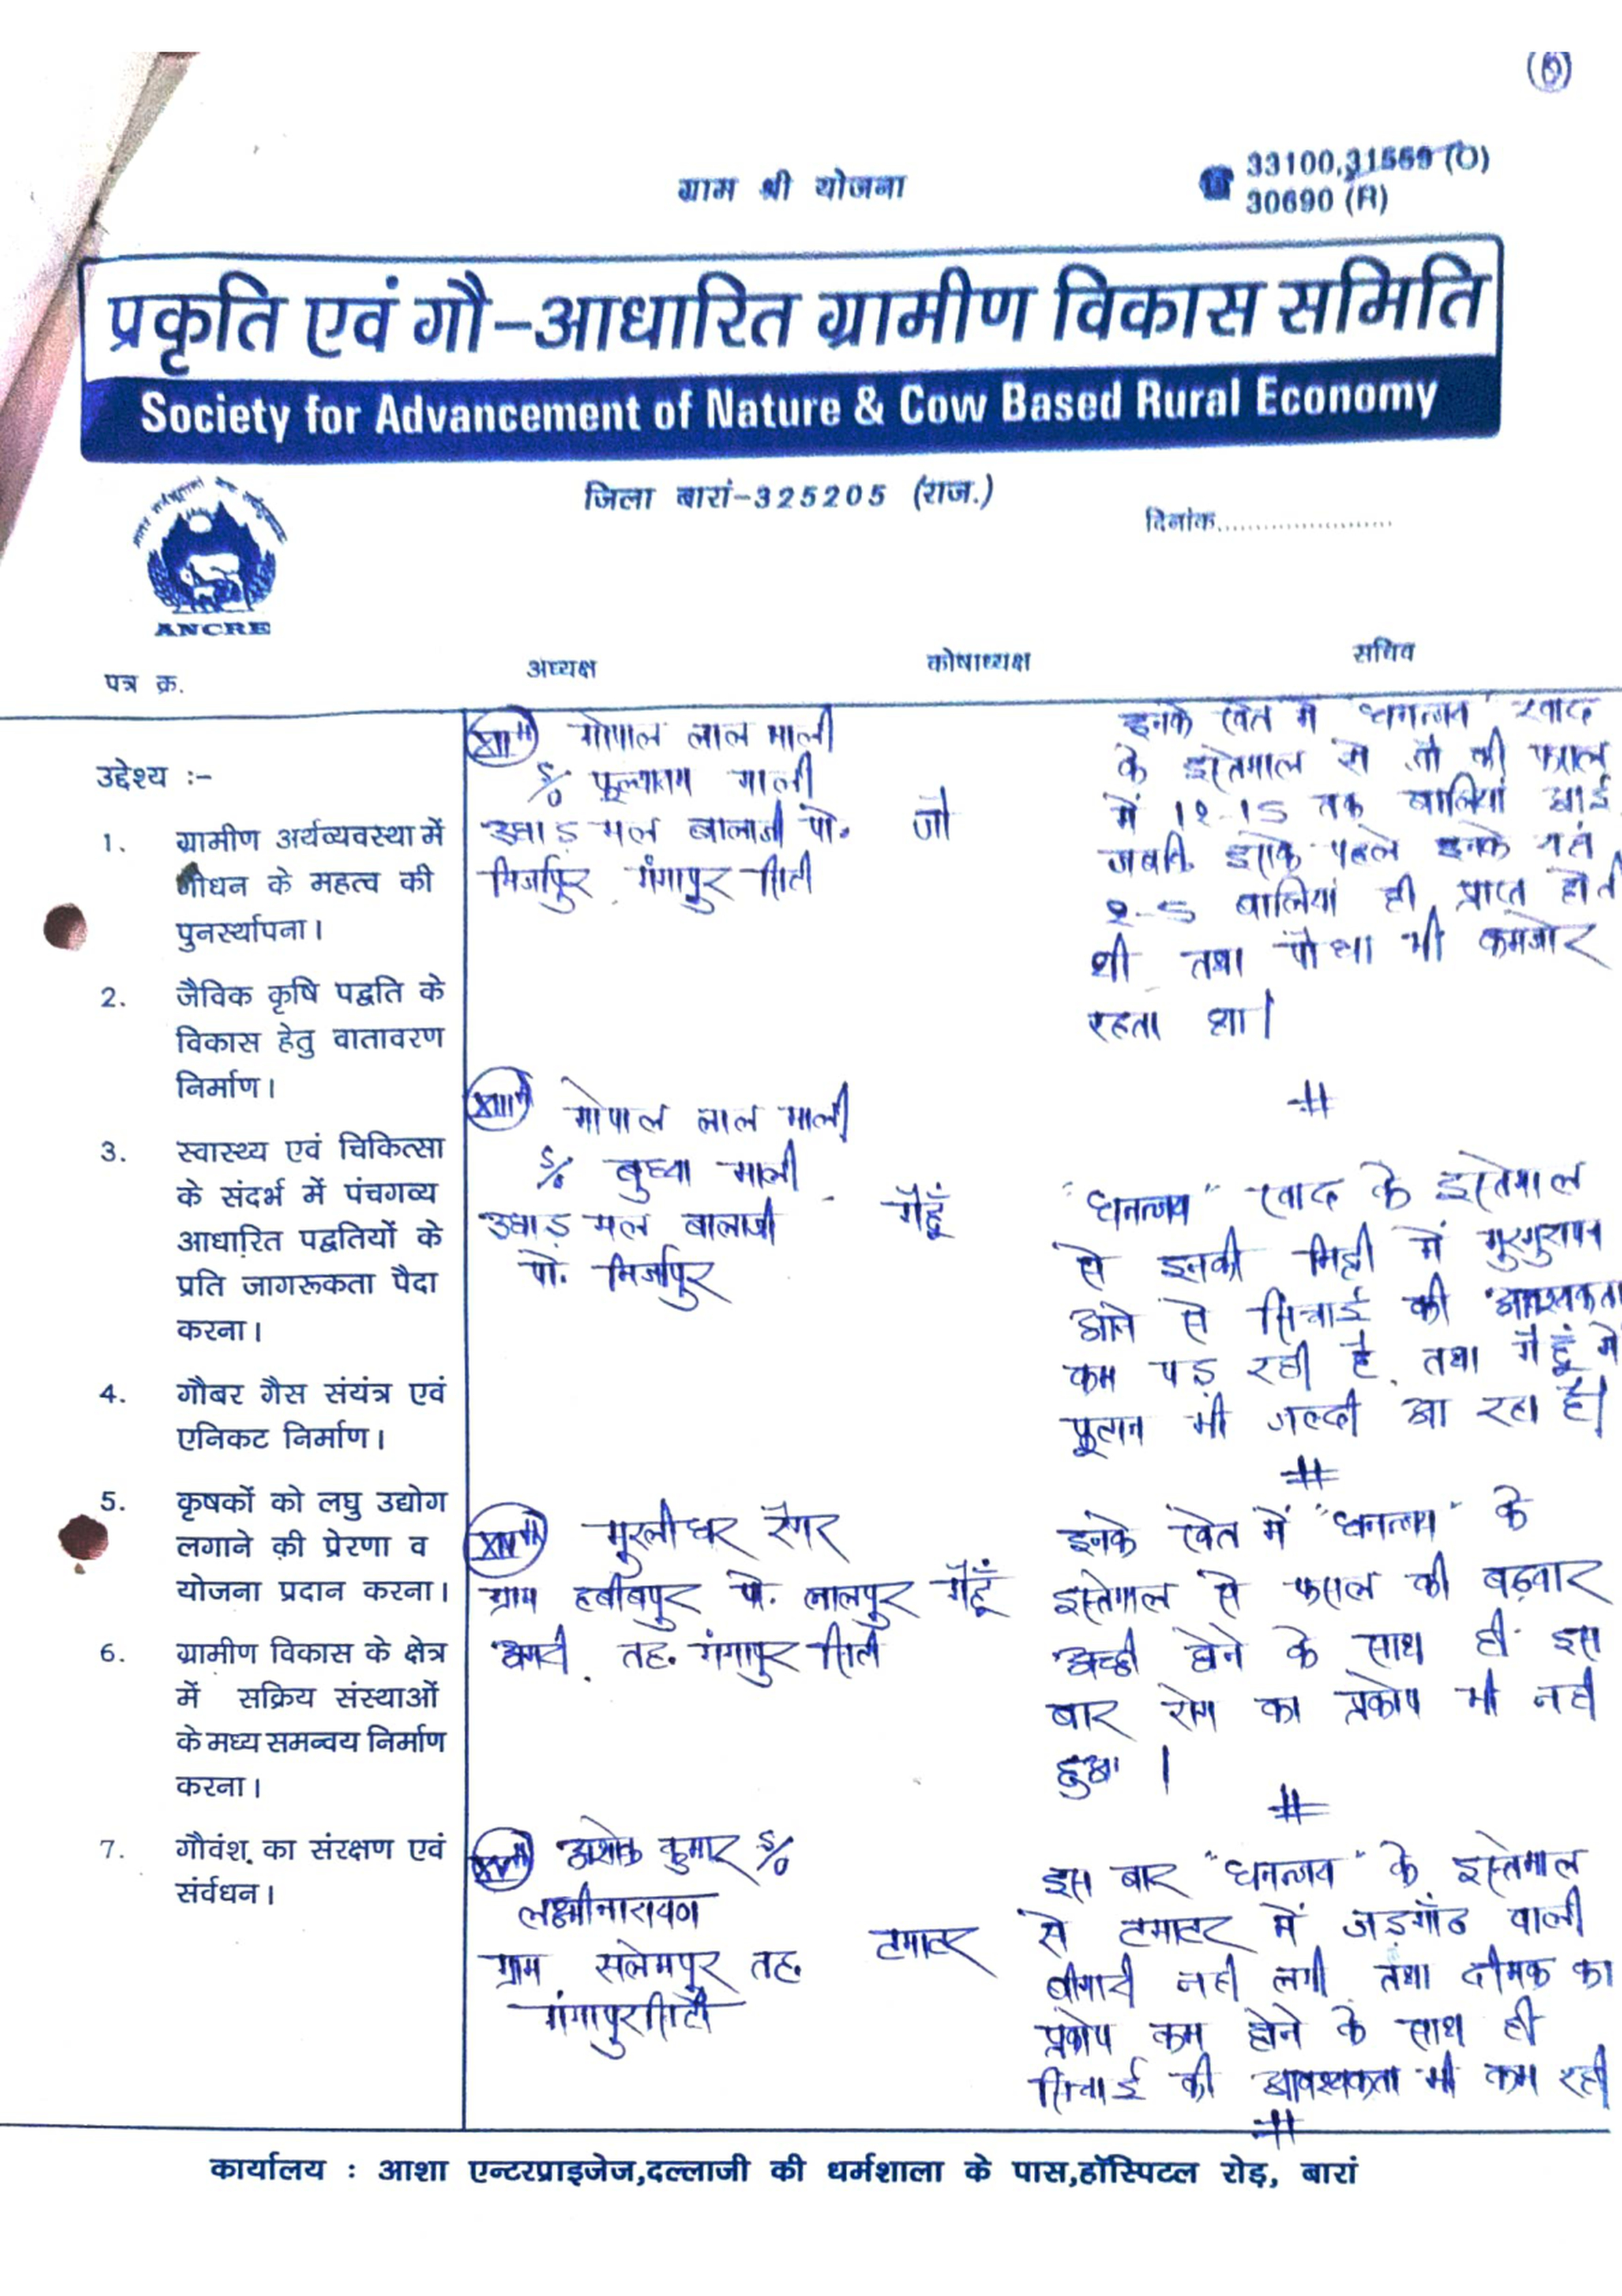 ग्राम श्री योजना
33100,31559 (O)
30690 (R)
प्रकृति एवं गौ-आधारित ग्रामीण विकास समिति
Society for Advancement of Nature & Cow Based Rural Economy
जिला बारां-325205 (राज.)
दिनांक......................
ANCRE
पत्र क्र.
अध्यक्ष
कोषाध्यक्ष
सचिव
उद्देश्य :-
1. ग्रामीण अर्थव्यवस्था में
गोधन के महत्व की
पुनर्स्थापना।
2. जैविक कृषि पद्वति के
विकास हेतु वातावरण
निर्माण।
3. स्वास्थ्य एवं चिकित्सा
के संदर्भ में पंचगव्य
आधारित पद्वतियों के
प्रति जागरूकता पैदा
करना।
4. गौबर गैस संयंत्र एवं
एनिकट निर्माण।
5. कृषकों को लघु उद्योग
लगाने की प्रेरणा व
योजना प्रदान करना।
6. ग्रामीण विकास के क्षेत्र
में सक्रिय संस्थाओं
के मध्य समन्वय निर्माण
करना।
7. गौवंश का संरक्षण एवं
संर्वधन।
XIIth गोपाल लाल माली
S/o माली
उघाड़ मल बालाजी पो.
मिर्जापुर, गंगापुर सिटी
जौ
इनके खेत में धनन्जय खाद
के इस्तेमाल से जौ की फसल
में 12-15 तक बालियां आई
जबकि इसके पहले इनके यहां
2-5 बालियां ही प्राप्त होती
थी तथा पौधा भी कमजोर
रहता था।
#
XIIIth गोपाल लाल माली
S/o बुध्या माली
उघाड़ मल बालाजी
पो. मिर्जापुर
गैहूँ
"धनन्जय" खाद के इस्तेमाल
से इनकी मिट्टी में भुरभुरापन
आने से सिंचाई की आवश्यकता
कम पड़ रही है, तथा गैहूं में
फुटान भी जल्दी आ रहा है।
#
XIVth मुरलीधर रैगर
ग्राम हबीबपुर पो. लालपुर
तह. गंगापुर सिटी
गैहूँ
इनके खेत में "धनन्जय" के
इस्तेमाल से फसल की बढ़वार
अच्छी होने के साथ ही इस
बार रोग का प्रकोप भी नही
हुआ।
#
XVth अशोक कुमार S/o
लक्ष्मीनारायण
ग्राम सलेमपुर तह.
गंगापुर सिटी
टमाटर
इस बार "धनन्जय" के इस्तेमाल
से टमाटर में जड़गाँठ वाली
बीमारी नही लगी तथा दीमक का
प्रकोप कम होने के साथ ही
सिंचाई की आवश्यकता भी कम रही
#
कार्यालय : आशा एन्टरप्राइजेज,दल्लाजी की धर्मशाला के पास,हॉस्पिटल रोड़, बारां